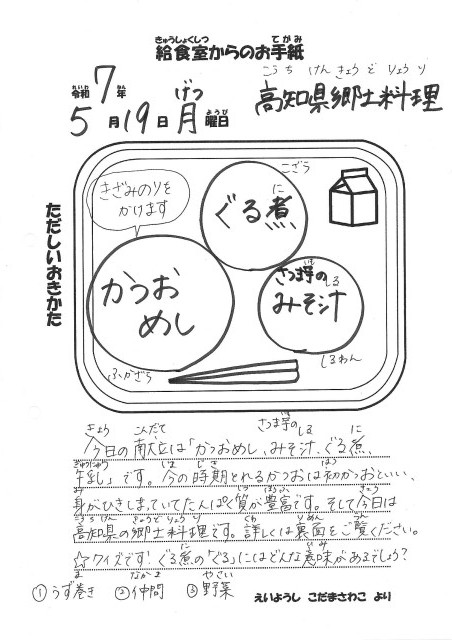 給食室からのお手紙
令和7年
5月19日月曜日
高知県郷土料理
ただしいおきかた
きざみのりを
かけます
こざら
ぐる煮
かつお
めし
ふかざら
さつま芋の
みそ汁
しるわん
今日の献立は「かつおめし、みそ汁、ぐる煮、
牛乳」です。今の時期とれるかつおは初かつおといい、
身がひきしまっていてたんぱく質が豊富です。そして今日は
高知県の郷土料理です。詳しくは裏面をご覧ください。
☆クイズです！ぐる煮の「ぐる」にはどんな意味があるでしょう？
①うず巻き ②仲間 ③野菜
えいようし こだまさわこ より